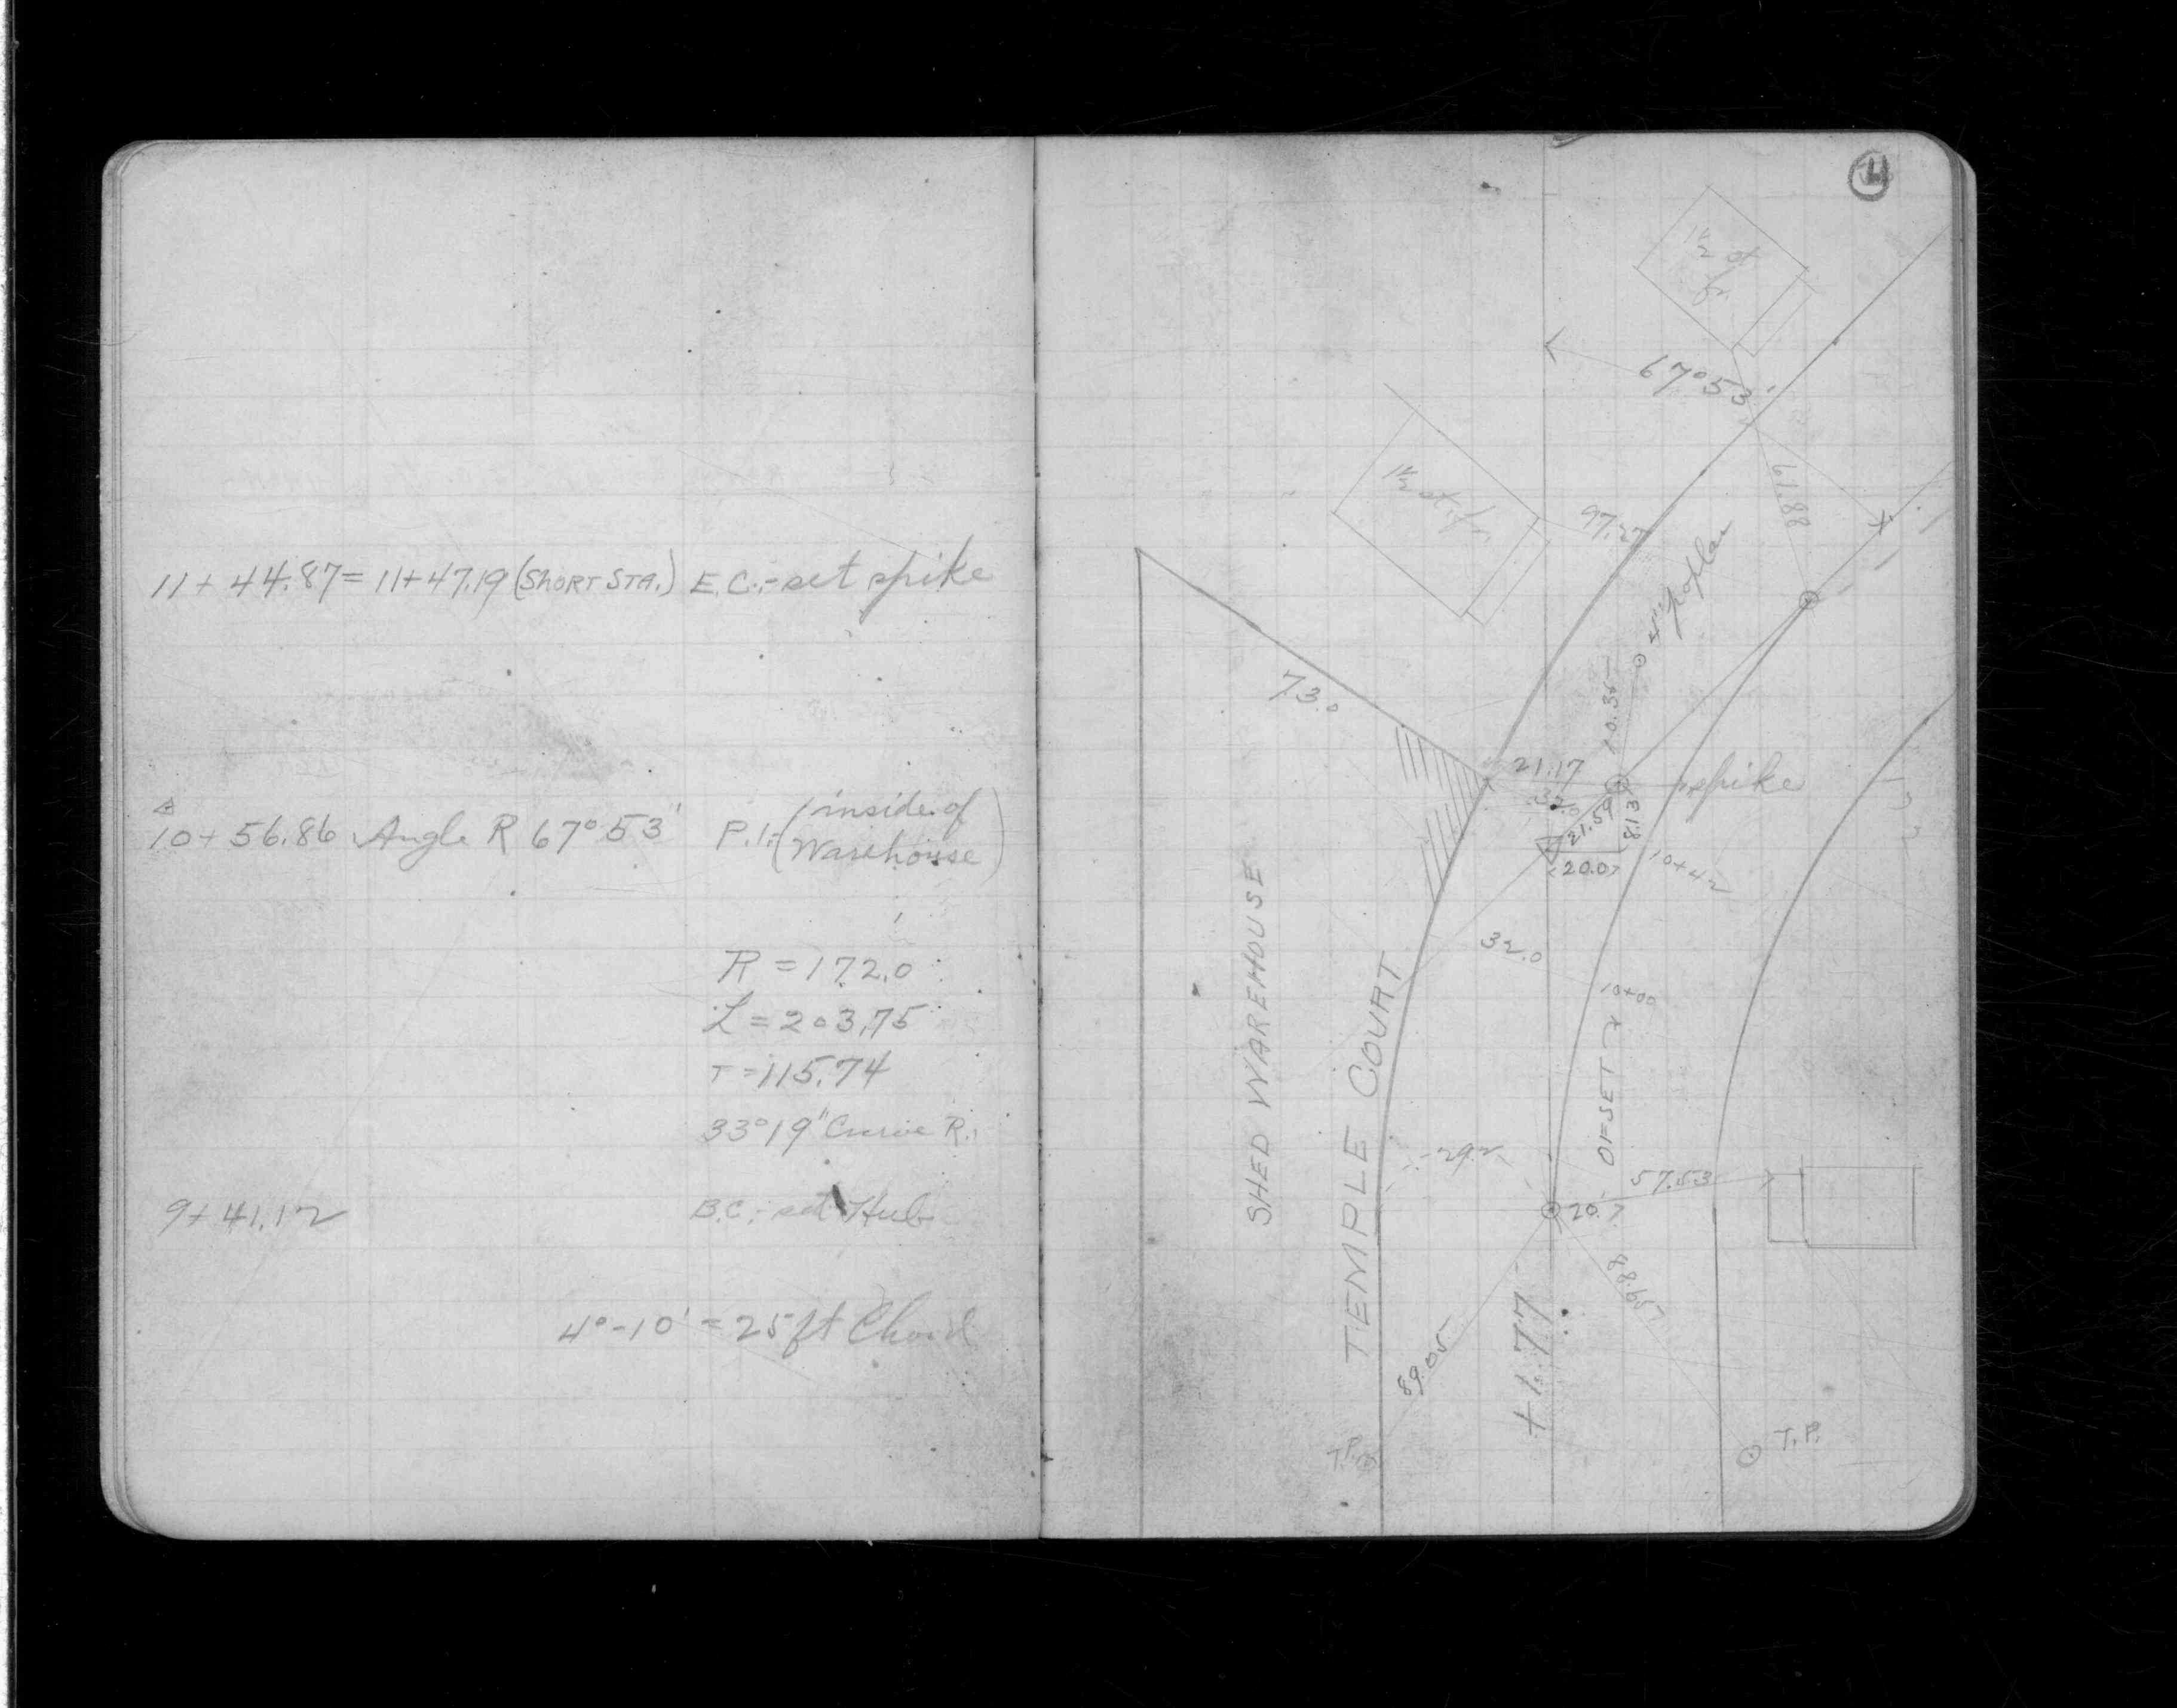 11 + 44.87 = 11+47.19 (SHORT STA.) E.C.:- set spike
10 + 56.86 Angle R 67° 53' P.I.:- (inside of
Warehouse)
R = 172.0
L = 203.75
T = 115.74
33° 19" Curve R.
9 + 41.12 B.C.:- set Hub
4° - 10' = 25 ft Chord
4
67° 53'
61.88
97.27
poplar
73.0
10.35
21.17
spike
32.0
21.59
8.13
20.0
10+42
SHED WAREHOUSE
TEMPLE COURT
32.0
10+00
OFSET
29.2
57.53
20.
89.05
+1.77
T.P.
T.P.